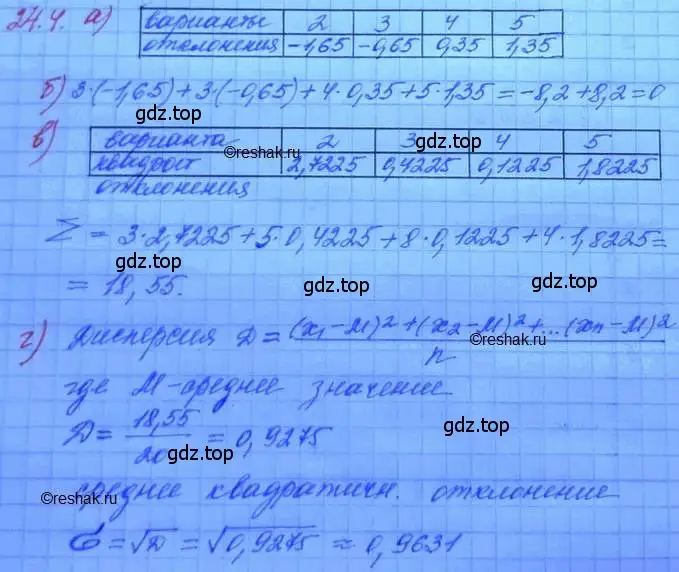 24.4. а) варианты 2 3 4 5
отклонения -1,65 -0,65 0,35 1,35
б) 3·(-1,65)+3·(-0,65)+4·0,35+5·1,35=-8,2+8,2=0
gdz.top
в) варианта 2 3 gdz.top 4 5
©reshak.ru
квадрат 2,7225 0,4225 0,1225 1,8225
отклонения
Σ = 3·2,7225+5·0,4225+8·0,1225+4·1,8225=
gdz.top gdz.top gdz.top
= 18,55.
г) Дисперсия D = (x₁-M)²+(x₂-M)²+...(xn-M)² / n
©reshak.ru gdz.top
где M-среднее значение
D = 18,55 / 20 = 0,9275
gdz.top gdz.top
среднее квадратичн. отклонение
©reshak.ru ©reshak.ru
σ = √D = √0,9275 ≈ 0,9631